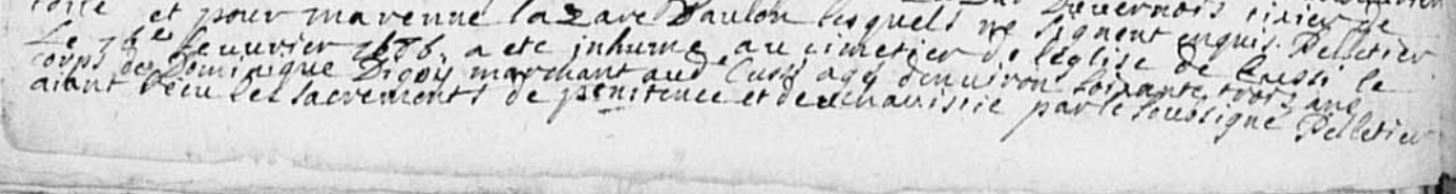 et pour marenne Lazare Daulon lesquels ne signent enquis. Pelletier
Le fevvrier 1686 a ete inhumé au cimetier de l'eglise de Cussi le
corps de Dominique Digoy marchant aud. Cussy agé d'environ soixante trois ans
aiant receu les sacrements de penitence et de euchauristie par le soubsigné Pelletier